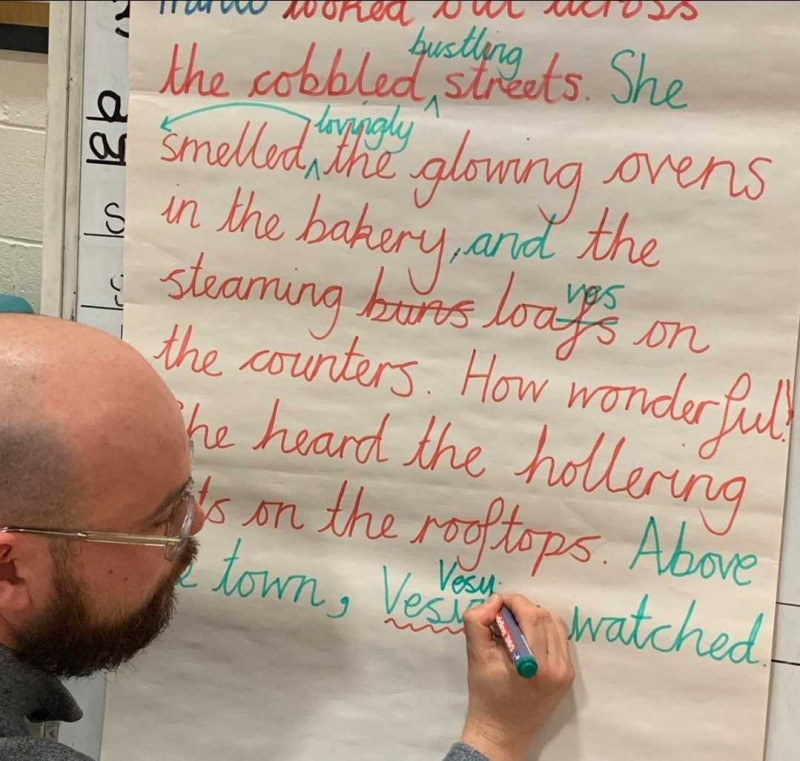 looked out across
bustling
the cobbled ^ streets. She
lovingly
smelled, ^ the glowing ovens
in the bakery, and the
steaming buns loafs on
ves
the counters. How wonderful!
he heard the hollering
ts on the rooftops. Above
e town, Vesu watched.
Vesu